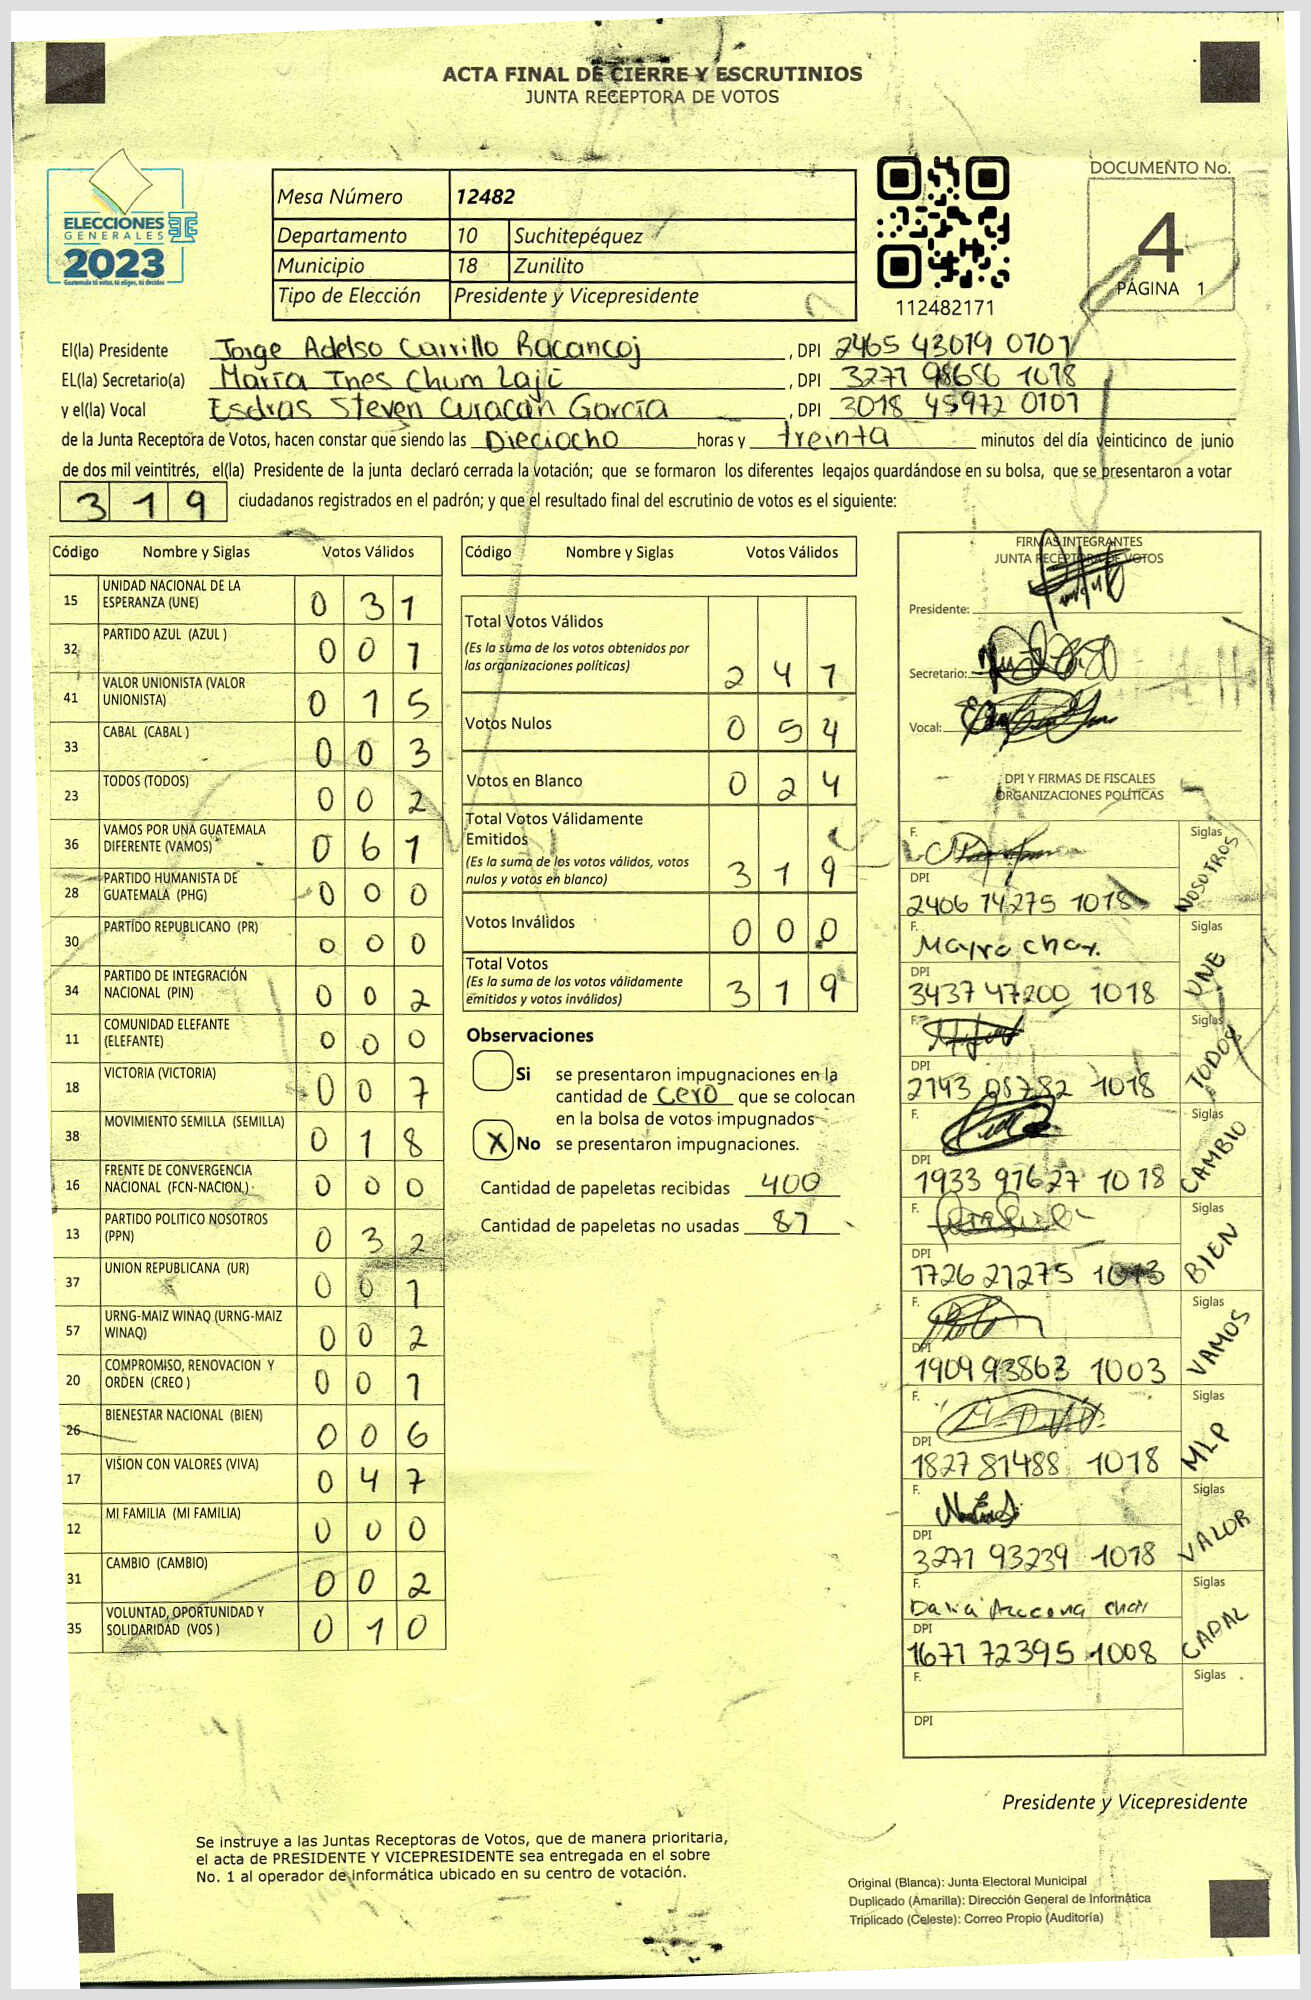 ACTA FINAL DE CIERRE Y ESCRUTINIOS
JUNTA RECEPTORA DE VOTOS
ELECCIONES
GENERALES
2023
Guatemala tú votas, tú eliges, tú decides
Mesa Número 12482
Departamento 10 Suchitepéquez
Municipio 18 Zunilito
Tipo de Elección Presidente y Vicepresidente
112482171
DOCUMENTO No.
4
PÁGINA 1
El(la) Presidente Jorge Adelso Carrillo Racancoj, DPI 2465 43019 0101
EL(la) Secretario(a) María Ines Chum Lají, DPI 3271 98656 1018
y el(la) Vocal Esdras Steven Curacán García, DPI 3018 45972 0101
de la Junta Receptora de Votos, hacen constar que siendo las Dieciocho horas y treinta minutos del día veinticinco de junio
de dos mil veintitrés, el(la) Presidente de la junta declaró cerrada la votación; que se formaron los diferentes legajos guardándose en su bolsa, que se presentaron a votar
319 ciudadanos registrados en el padrón; y que el resultado final del escrutinio de votos es el siguiente:
Código Nombre y Siglas Votos Válidos
15 UNIDAD NACIONAL DE LA ESPERANZA (UNE) 0 3 1
32 PARTIDO AZUL (AZUL ) 0 0 1
41 VALOR UNIONISTA (VALOR UNIONISTA) 0 1 5
33 CABAL (CABAL ) 0 0 3
23 TODOS (TODOS) 0 0 2
36 VAMOS POR UNA GUATEMALA DIFERENTE (VAMOS) 0 6 1
28 PARTIDO HUMANISTA DE GUATEMALA (PHG) 0 0 0
30 PARTIDO REPUBLICANO (PR) 0 0 0
34 PARTIDO DE INTEGRACIÓN NACIONAL (PIN) 0 0 2
11 COMUNIDAD ELEFANTE (ELEFANTE) 0 0 0
18 VICTORIA (VICTORIA) 0 0 7
38 MOVIMIENTO SEMILLA (SEMILLA) 0 1 8
16 FRENTE DE CONVERGENCIA NACIONAL (FCN-NACION ) 0 0 0
13 PARTIDO POLITICO NOSOTROS (PPN) 0 3 2
37 UNION REPUBLICANA (UR) 0 0 1
57 URNG-MAIZ WINAQ (URNG-MAIZ WINAQ) 0 0 2
20 COMPROMISO, RENOVACION Y ORDEN (CREO ) 0 0 1
26 BIENESTAR NACIONAL (BIEN) 0 0 6
17 VISION CON VALORES (VIVA) 0 4 7
12 MI FAMILIA (MI FAMILIA) 0 0 0
31 CAMBIO (CAMBIO) 0 0 2
35 VOLUNTAD, OPORTUNIDAD Y SOLIDARIDAD (VOS ) 0 1 0
Código Nombre y Siglas Votos Válidos
Total Votos Válidos
(Es la suma de los votos obtenidos por
las organizaciones políticas) 2 4 1
Votos Nulos 0 5 4
Votos en Blanco 0 2 4
Total Votos Válidamente
Emitidos
(Es la suma de los votos válidos, votos
nulos y votos en blanco) 3 1 9
Votos Inválidos 0 0 0
Total Votos
(Es la suma de los votos válidamente
emitidos y votos inválidos) 3 1 9
Observaciones
Si se presentaron impugnaciones en la
cantidad de cero que se colocan
en la bolsa de votos impugnados
X No se presentaron impugnaciones.
Cantidad de papeletas recibidas 400
Cantidad de papeletas no usadas 81
FIRMAS INTEGRANTES
JUNTA RECEPTORA DE VOTOS
Presidente:
Secretario:
Vocal:
DPI Y FIRMAS DE FISCALES
ORGANIZACIONES POLÍTICAS
F. Siglas NOSOTROS
DPI 2406 14275 1018
F. Mayra Chax. Siglas UNE
DPI 3437 47200 1018
F. Siglas TODOS
DPI 2143 08782 1018
F. Siglas CAMBIO
DPI 1933 91627 1018
F. Siglas BIEN
DPI 1726 21275
F. Siglas VAMOS
DPI 1909 93863 1003
F. Siglas MLP
DPI 1827 81488 1018
F. Siglas VALOR
DPI 3271 93239 1018
F. Siglas CABAL
DPI 1671 72395 1008
F. Siglas
DPI
Presidente y Vicepresidente
Se instruye a las Juntas Receptoras de Votos, que de manera prioritaria,
el acta de PRESIDENTE Y VICEPRESIDENTE sea entregada en el sobre
No. 1 al operador de informática ubicado en su centro de votación.
Original (Blanca): Junta Electoral Municipal
Duplicado (Amarilla): Dirección General de Informática
Triplicado (Celeste): Correo Propio (Auditoría)